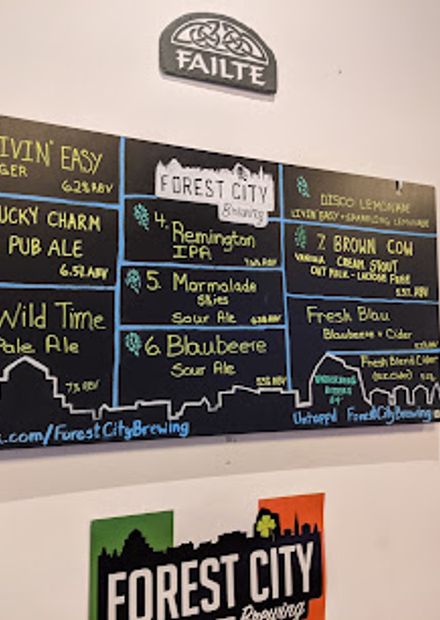 FAILTE
IVIN' EASY
GER
6.2% ABV
UCKY CHARM
PUB ALE
6.5% ABV
Wild Time
Pale Ale
7% ABV
.com/ForestCityBrewing
FOREST CITY
Brewing
4. Remington
IPA
5. Marmalade
Skies
Sour Ale
6. Blaubeere
Sour Ale
DISCO LEMONADE
LIVIN' EASY + SPARKLING LEMONADE
7 BROWN COW
VANILLA CREAM STOUT
OAT MILK - LACTOSE FREE
Fresh Blau
Blaubeere + Cider
Fresh Blend Cider
Untappd ForestCityBrewing
FOREST CITY
Brewing